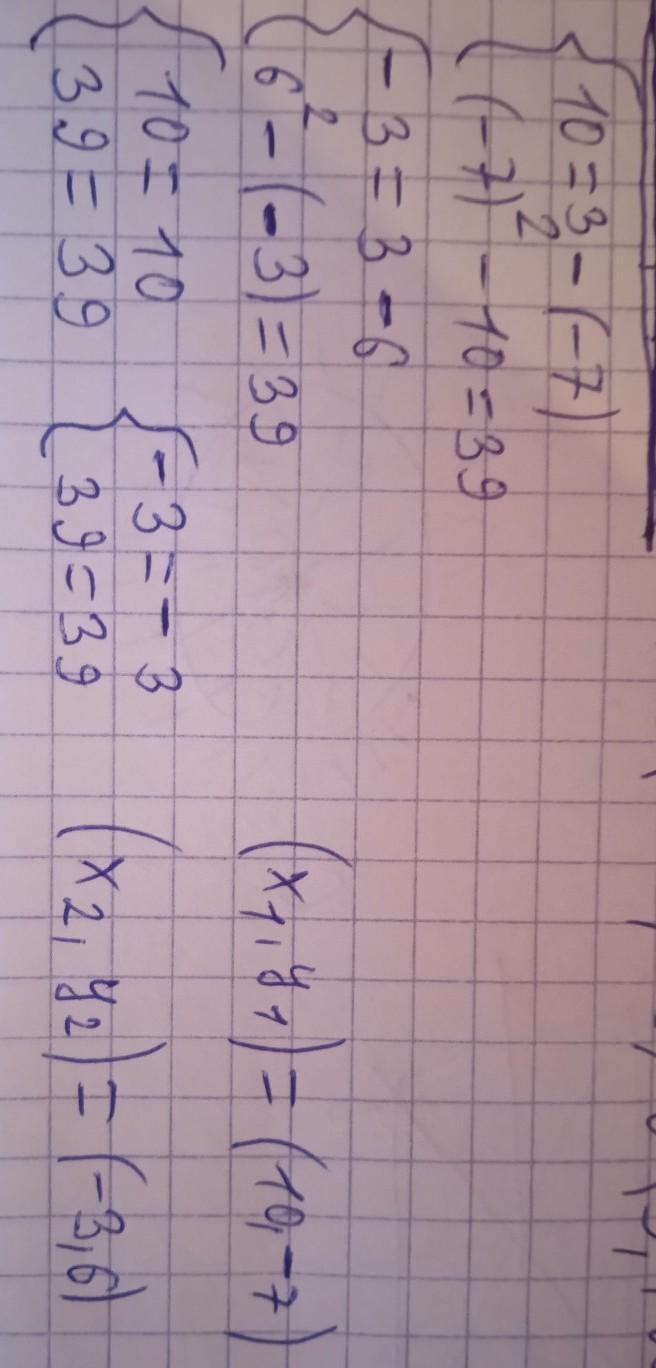 { 10 = 3 - (-7)
(-7)² - 10 = 39
{ -3 = 3 - 6
6² - (-3) = 39
{ 10 = 10 { -3 = -3
39 = 39 39 = 39
(x1, y1) = (10, -7)
(x2, y2) = (-3, 6)